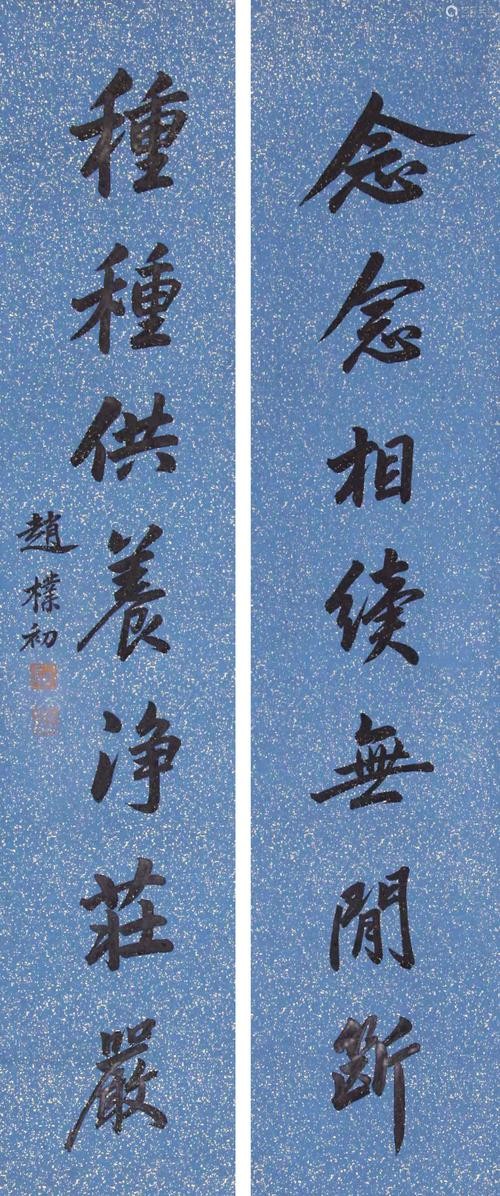 念念相續無閒斷
種種供養淨莊嚴
趙樸初